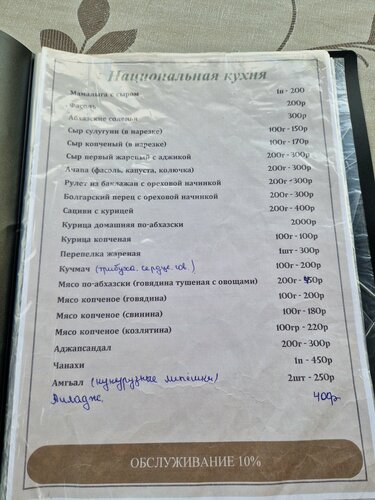 Национальная кухня
Мамалыга с сыром 1п - 200
Фасоль 200р
Абхазские соленья 300р
Сыр сулугуни (в нарезке) 100г - 150р
Сыр копченый (в нарезке) 100г - 170р
Сыр первый жареный с аджикой 200г - 300р
Ачапа (фасоль, капуста, колючка) 200г - 300р
Рулет из баклажан с ореховой начинкой 200г - 300р
Болгарский перец с ореховой начинкой 200г - 300р
Сациви с курицей 200г - 400р
Курица домашняя по-абхазски 2000р
Курица копченая 100г - 100р
Перепелка жареная 1шт - 300р
Кучмач (трибуха, сердце гов.) 100г - 200р
Мясо по-абхазски (говядина тушеная с овощами) 200г - 450р
Мясо копченое (говядина) 100г - 200р
Мясо копченое (свинина) 100г - 180р
Мясо копченое (козлятина) 100гр - 220р
Аджапсандал 200г - 300р
Чанахи 1п - 450р
Амгьал (кукурузные лепешки) 2шт - 250р
Айладж 400р
ОБСЛУЖИВАНИЕ 10%